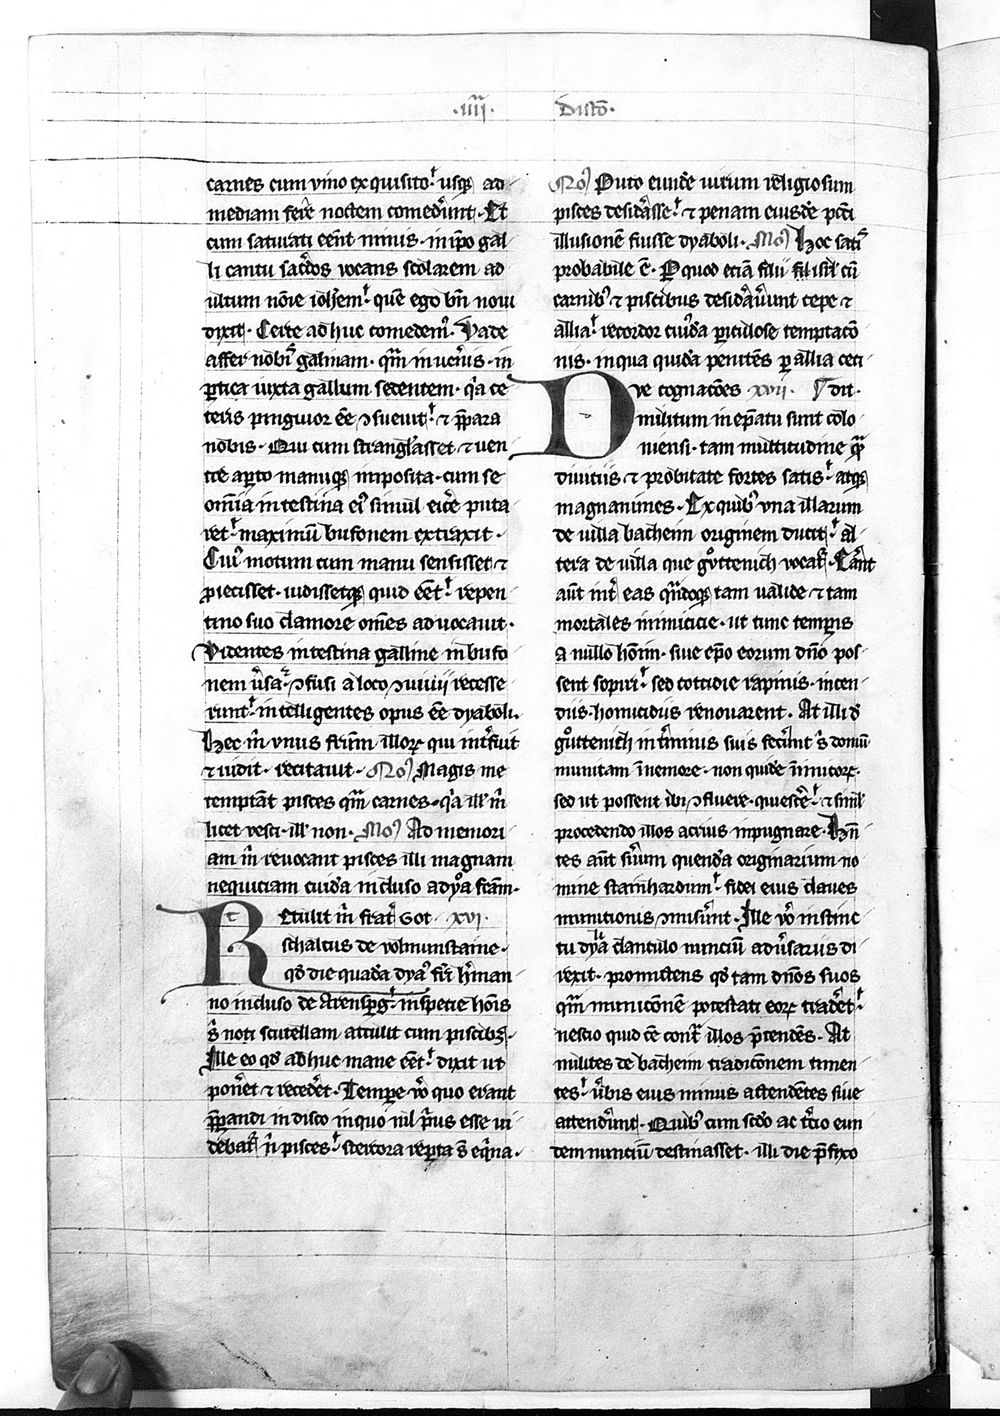 ·iiii·
Distō·
carnes cum vino exquisito⸵ usq̨ ad
mediam fere noctem comed̾unt· Et
cum saturati eēnt nimis· in ip̄o gal
li cantu sac̾dos vocans scolarem ad
ultum nōie ioh̄em⸵ quē ego bn̄ novi
dixit· Certe ad huc comedem᷒· Vade
affer nob᷒ gallinam· qm̄ in uent̾s· in
p̱tica iuxta gallum sedentem· q̾a ce
teris pinguior eē ꝯsuevit⸵ ⁊ p̄para
nobis· Qui cum strangl̾asset ⁊ uen
tre ap̱to manuq̨ imposita· cum se
om̄ia intestina ei᷒ simul eic̾e puta
ret⸵ maximū bufonem extraxit·
Cui᷒ motum cum manu sensisset ⁊
ꝓiecisset· uidissetq̨ quid eēt⸵ repen
tino suo clamore om̄es advocauit·
Videntes intestina galline in bufo
nem v̾sa· ꝯfusi a loco ꝯuiuii recesse
runt⸵ intelligentes opus eē dyaboli·
Hec m̄ vnus fr̄um illoꝝ qui int̾fuit
⁊ uidit· recitauit· No᷒ Magis me
temptāt pisces qm̄ carnes· q̾a ill̾ m̄
licet vesci· ill̾ non· Mo᷒ Ad memori
am m̄ reuocant pisces illi magnam
nequiciam cuidā incluso a dyo̾ fcām·
Retulit m̄ frat̾ Got xvi·
schalcus de volmuntsteine·
qd̾ die quadā dya᷒ fr̄i h̾man
no incluso de Arensp̱g⸵ in specie hoīs
s̾ noti scutellam attulit cum piscibꝫ·
Ille eo qd̾ ad huc mane eēt⸵ dixit ut
pon̾et ⁊ reced̾et· Tempe v̾o quo erant
p̄parandi in disco in quo nil p̾us esse ui
debat̾ n̄ pisces⸵ stercora rep̱ta s̄ eq̾na·
No᷒ Puto eiusdē uirum religiosum
pisces desid̾asse⸵ ⁊ penam eiusdē pcc̄i
illusionē fuisse dyaboli· Mo᷒ Hoc sat᷒
probabile ē· P quod etiā filii isr̄l cū
carnib᷒ ⁊ piscibus desid̾av̾unt cepe ⁊
allia⸵ recordor cui᷒dā p̱iculose temptatō
nis· in qua quidā penitēs p̱ allia ceci
De cognatōes xvii· dit·
militum in ep̄atu sunt colo
niensi· tam multitudine q̄
diuiciis ⁊ probitate fortes satis⸵ atq̨
magnanimes· Ex quib᷒ vna illarum
de uilla bacheim originem ducit⸵ al
tera de uilla que gůttenich vocat̾· Erant
aūt int̾ eas qn̄doq̨ tam ualide ⁊ tam
mortales inimicicie· ut tunc temp̱is
a nullo hoīm· siue ep̄o eorum dn̄o pos
sent sopiri⸵ sed cottidie rapinis· incen
diis· homicidiis renouarent· At illi d̾
gůttenich in t̾minis suis fec̾unt s̄ domū
munitam ī nemore· non quidē inimicoꝝ·
sed ut possent ibi ꝯfluere· quiesc̾e⸵ ⁊ simul
procedendo illos acrius inpugnare· Hn̄
tes aūt s̾uum quendā originarium no
mine stainhardum⸵ fidei eius claues
munitionis ꝯmis̾unt· Ille v̾o instinc
tu dya̾ clanculo nunciū adu̾sariis di
rexit· promittens qd̾ tam dn̄os suos
qm̄ municōnē potestati eoꝝ trad̾et⸵
nescio quid eē cont̾ illos p̄tendēs· At
milites de bacheim tradicōnem timen
tes⸵ v̾bis eius minus attendētes siue
attend̾unt· Quib᷒ cum sc̄do ac t̾cio eun
dem nunciū destinasset· illi die p̄fixo